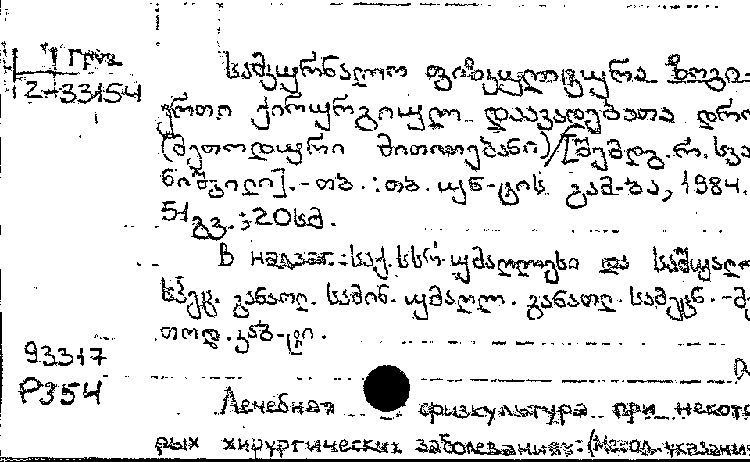 Груз
2-33154
სამკურნალო ფიზკულტურა ზოგი-
ერთი ქირურგიულ დაავადებათა დრო
(მეთოდური მითითებანი)/[შემდგ. რ. სვა
ნიშვილი]. - თბ. : თბ. უნ-ტის გამ-ბა, 1984.
51 გვ. ; 20 სმ.
В надзаг.: საქ. სსრ უმაღლესი და საშუალო
სპეც. განათლ. სამინ. უმაღლ. განათლ. სამეცნ. - მე
თოდ. კაბ-ტი.
93317
Р354
Лечебная физкультура при некото
рых хирургических заболеваниях: (Метод. указани